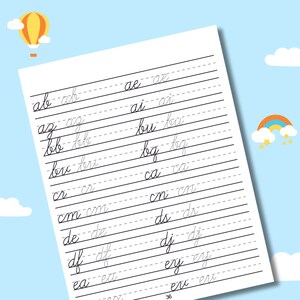 ab ab ae ae
az az ai ai
bb bb bu bu
bw bw bq bq
cr cr ca ca
cm cm cn cn
de de ds ds
df df dj dj
ea ea ey ey
ev ev
36